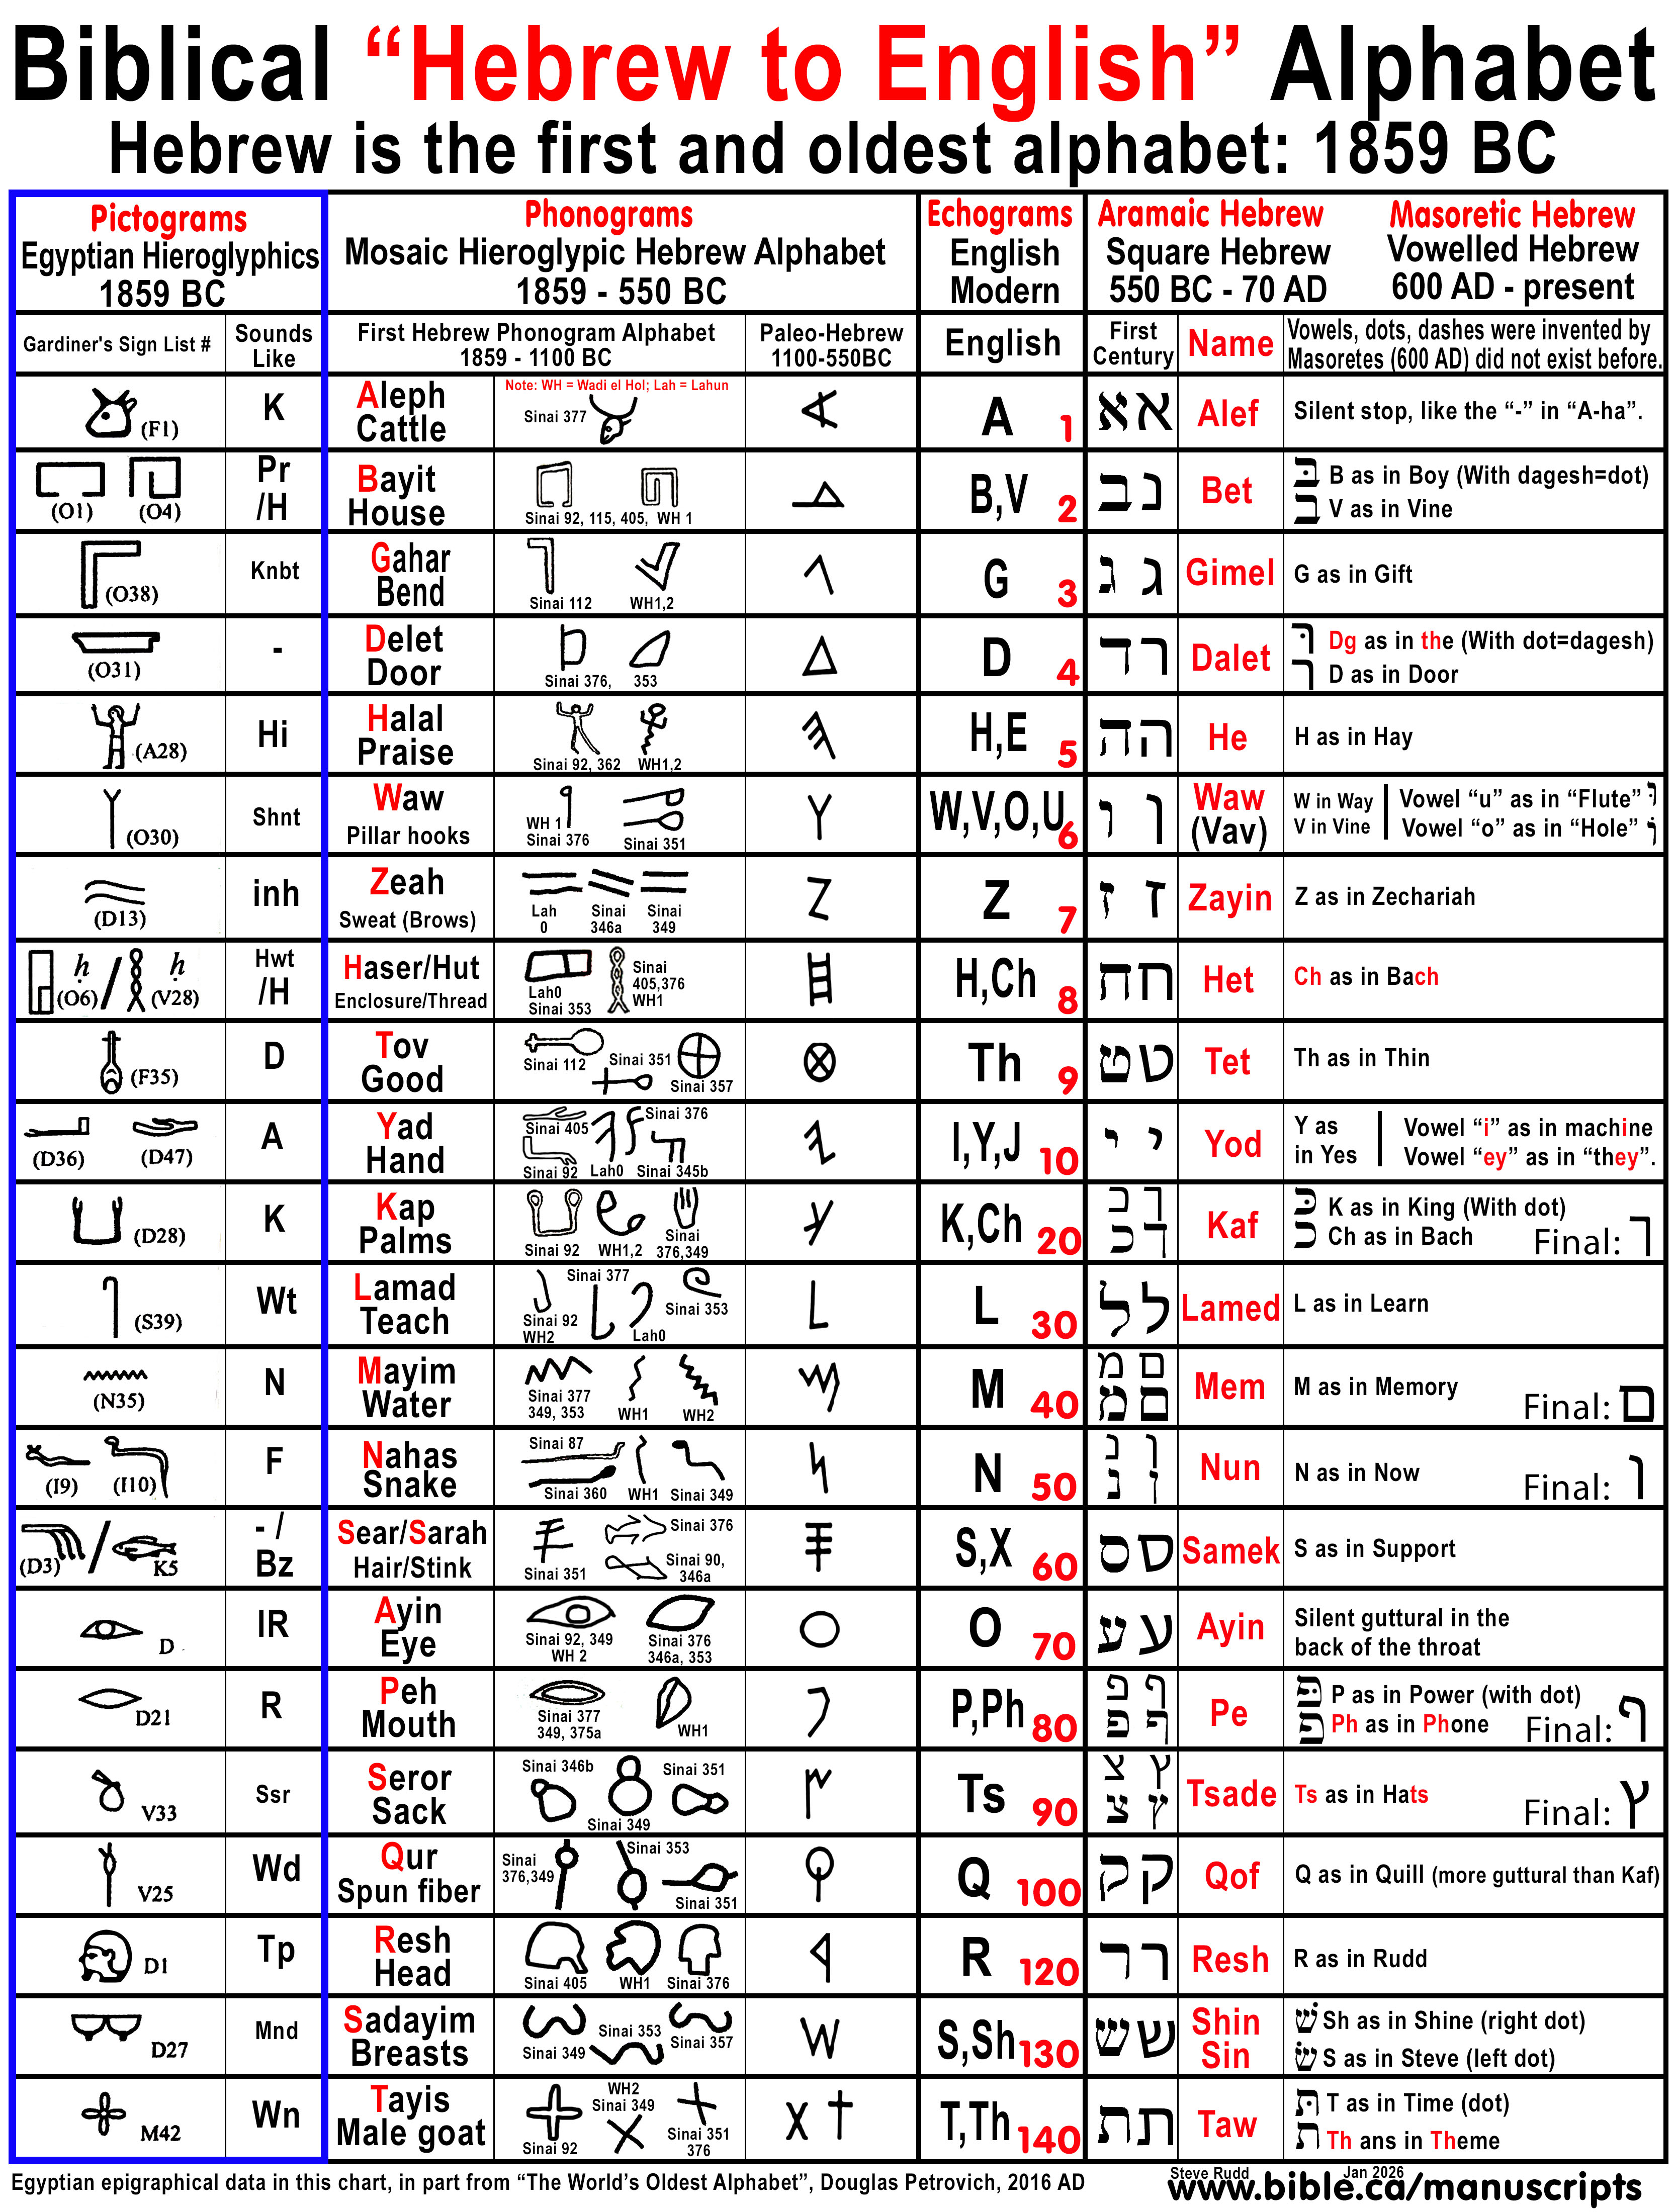 Biblical “Hebrew to English” Alphabet
Hebrew is the first and oldest alphabet: 1859 BC
Pictograms
Egyptian Hieroglyphics
1859 BC
Phonograms
Mosaic Hieroglypic Hebrew Alphabet
1859 - 550 BC
Echograms
English
Modern
Aramaic Hebrew
Square Hebrew
550 BC - 70 AD
Masoretic Hebrew
Vowelled Hebrew
600 AD - present
Gardiner's Sign List #
Sounds
Like
First Hebrew Phonogram Alphabet
1859 - 1100 BC
Paleo-Hebrew
1100-550BC
English
First
Century
Name
Vowels, dots, dashes were invented by
Masoretes (600 AD) did not exist before.
(F1)
K
Aleph
Cattle
Note: WH = Wadi el Hol; Lah = Lahun
Sinai 377
A 1
א א
Alef
Silent stop, like the “-” in “A-ha”.
(O1) (O4)
Pr
/H
Bayit
House
Sinai 92, 115, 405, WH 1
B,V 2
ב נ
Bet
בּ B as in Boy (With dagesh=dot)
ב V as in Vine
(O38)
Knbt
Gahar
Bend
Sinai 112 WH1,2
G 3
ג ג
Gimel
G as in Gift
(O31)
-
Delet
Door
Sinai 376, 353
D 4
ד ר
Dalet
Dg as in the (With dot=dagesh)
D as in Door
(A28)
Hi
Halal
Praise
Sinai 92, 362 WH1,2
H,E 5
ה ה
He
H as in Hay
(O30)
Shnt
Waw
Pillar hooks
WH 1
Sinai 376 Sinai 351
W,V,O,U 6
ו ו
Waw
(Vav)
W in Way
V in Vine
Vowel “u” as in “Flute” וּ
Vowel “o” as in “Hole” וֹ
(D13)
inh
Zeah
Sweat (Brows)
Lah
0
Sinai
346a
Sinai
349
Z 7
ז ז
Zayin
Z as in Zechariah
ḥ (O6) / ḥ (V28)
Hwt
/H
Haser/Hut
Enclosure/Thread
Lah0
Sinai 353
Sinai
405,376
WH1
H,Ch 8
ח ח
Het
Ch as in Bach
(F35)
D
Tov
Good
Sinai 112 Sinai 351
Sinai 357
Th 9
ט ט
Tet
Th as in Thin
(D36) (D47)
A
Yad
Hand
Sinai 405 Sinai 376
Sinai 92 Lah0 Sinai 345b
I,Y,J 10
י י
Yod
Y as
in Yes
Vowel “i” as in machine
Vowel “ey” as in “they”.
(D28)
K
Kap
Palms
Sinai 92 WH1,2 Sinai
376,349
K,Ch 20
כ ך
כ ך
Kaf
כּ K as in King (With dot)
כ Ch as in Bach Final: ך
(S39)
Wt
Lamad
Teach
Sinai 377
Sinai 92
WH2
Lah0
Sinai 353
L 30
ל ל
Lamed
L as in Learn
(N35)
N
Mayim
Water
Sinai 377
349, 353 WH1 WH2
M 40
מ ם
מ ם
Mem
M as in Memory Final: ם
(I9) (I10)
F
Nahas
Snake
Sinai 87
Sinai 360 WH1 Sinai 349
N 50
נ ן
נ ן
Nun
N as in Now Final: ן
(D3) / K5
- /
Bz
Sear/Sarah
Hair/Stink
Sinai 376
Sinai 351
Sinai 90,
346a
S,X 60
ס ס
Samek
S as in Support
D
IR
Ayin
Eye
Sinai 92, 349
WH 2
Sinai 376
346a, 353
O 70
ע ע
Ayin
Silent guttural in the
back of the throat
D21
R
Peh
Mouth
Sinai 377
349, 375a
WH1
P,Ph 80
פ ף
פ ף
Pe
פּ P as in Power (with dot)
פ Ph as in Phone Final: ף
V33
Ssr
Seror
Sack
Sinai 346b Sinai 351
Sinai 349
Ts 90
צ ץ
צ ץ
Tsade
Ts as in Hats Final: ץ
V25
Wd
Qur
Spun fiber
Sinai
376,349
Sinai 353
Sinai 351
Q 100
ק ק
Qof
Q as in Quill (more guttural than Kaf)
D1
Tp
Resh
Head
Sinai 405 WH1 Sinai 376
R 120
ר ר
Resh
R as in Rudd
D27
Mnd
Sadayim
Breasts
Sinai 349 Sinai 353 Sinai 357
S,Sh 130
ש ש
Shin
Sin
שׁ Sh as in Shine (right dot)
שׂ S as in Steve (left dot)
M42
Wn
Tayis
Male goat
WH2
Sinai 349
Sinai 92
Sinai 351
376
T,Th 140
ת ת
Taw
תּ T as in Time (dot)
ת Th ans in Theme
Egyptian epigraphical data in this chart, in part from “The World’s Oldest Alphabet”, Douglas Petrovich, 2016 AD
Steve Rudd Jan 2026
www.bible.ca/manuscripts